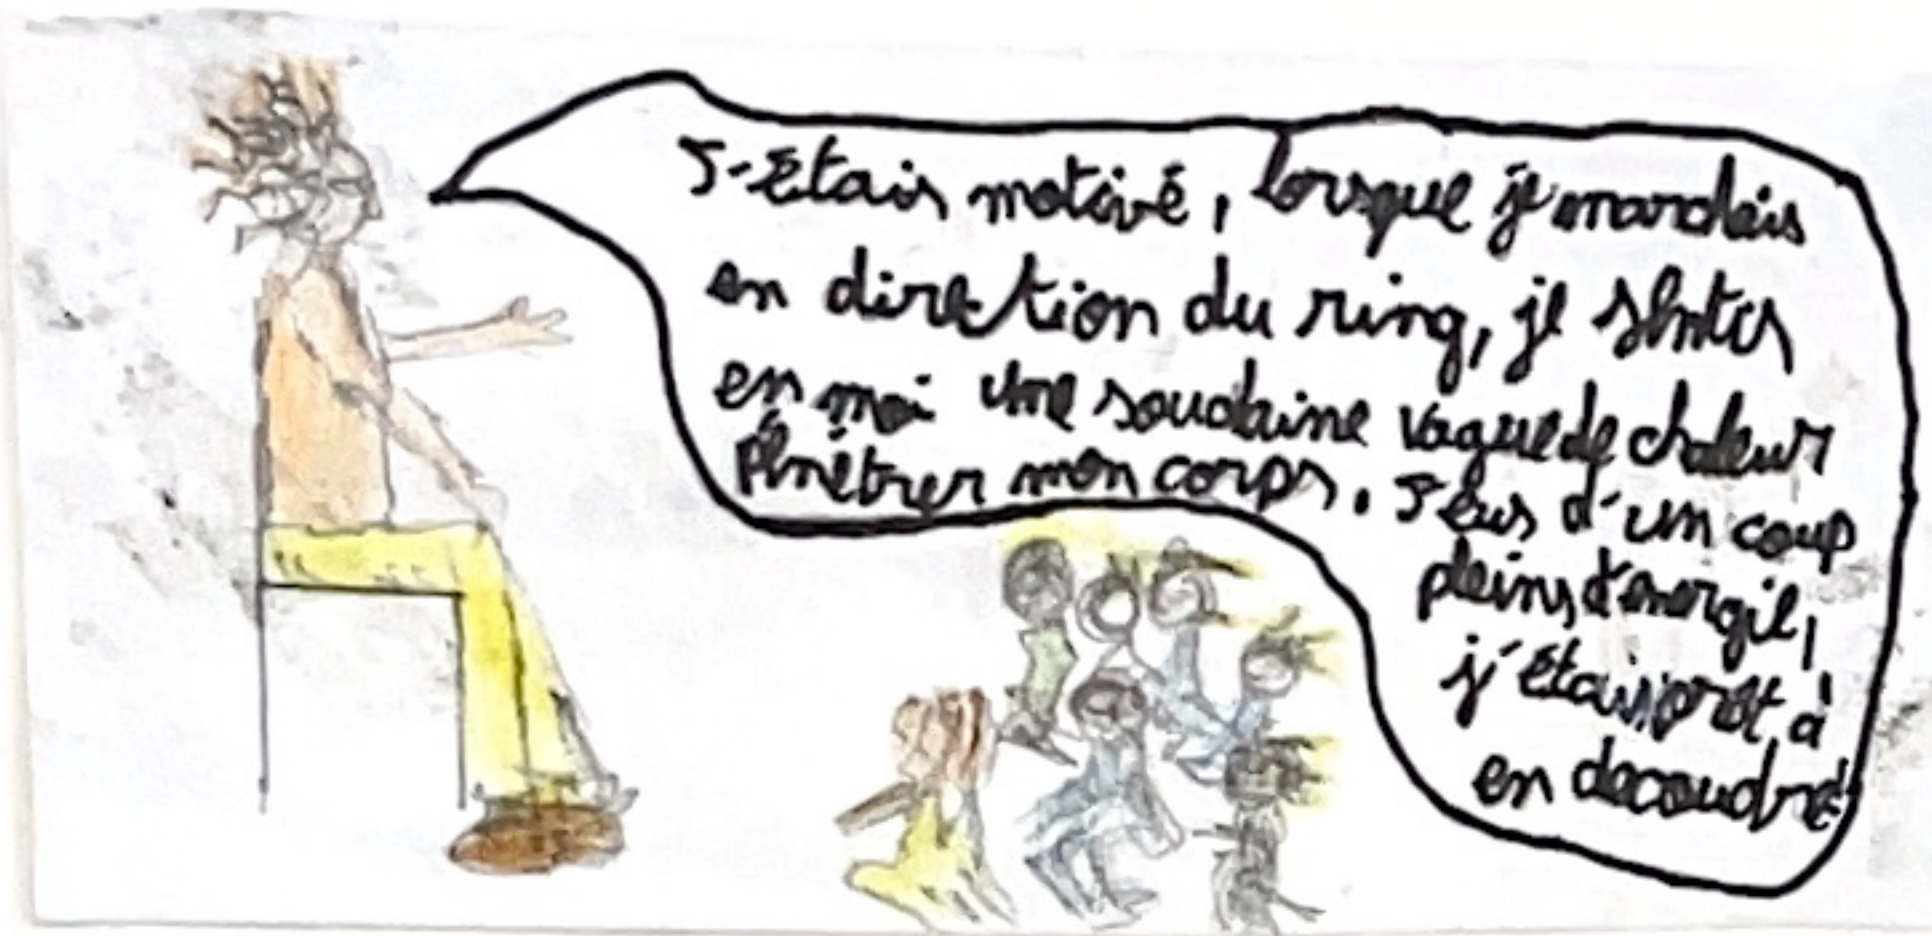 J'étais motivé, lorsque je marchais
en direction du ring, je sentis
en moi une soudaine vague de chaleur
pénétrer mon corps. J'eus d'un coup
pleins d'énergie,
j'étais prêt à
en decoudre!